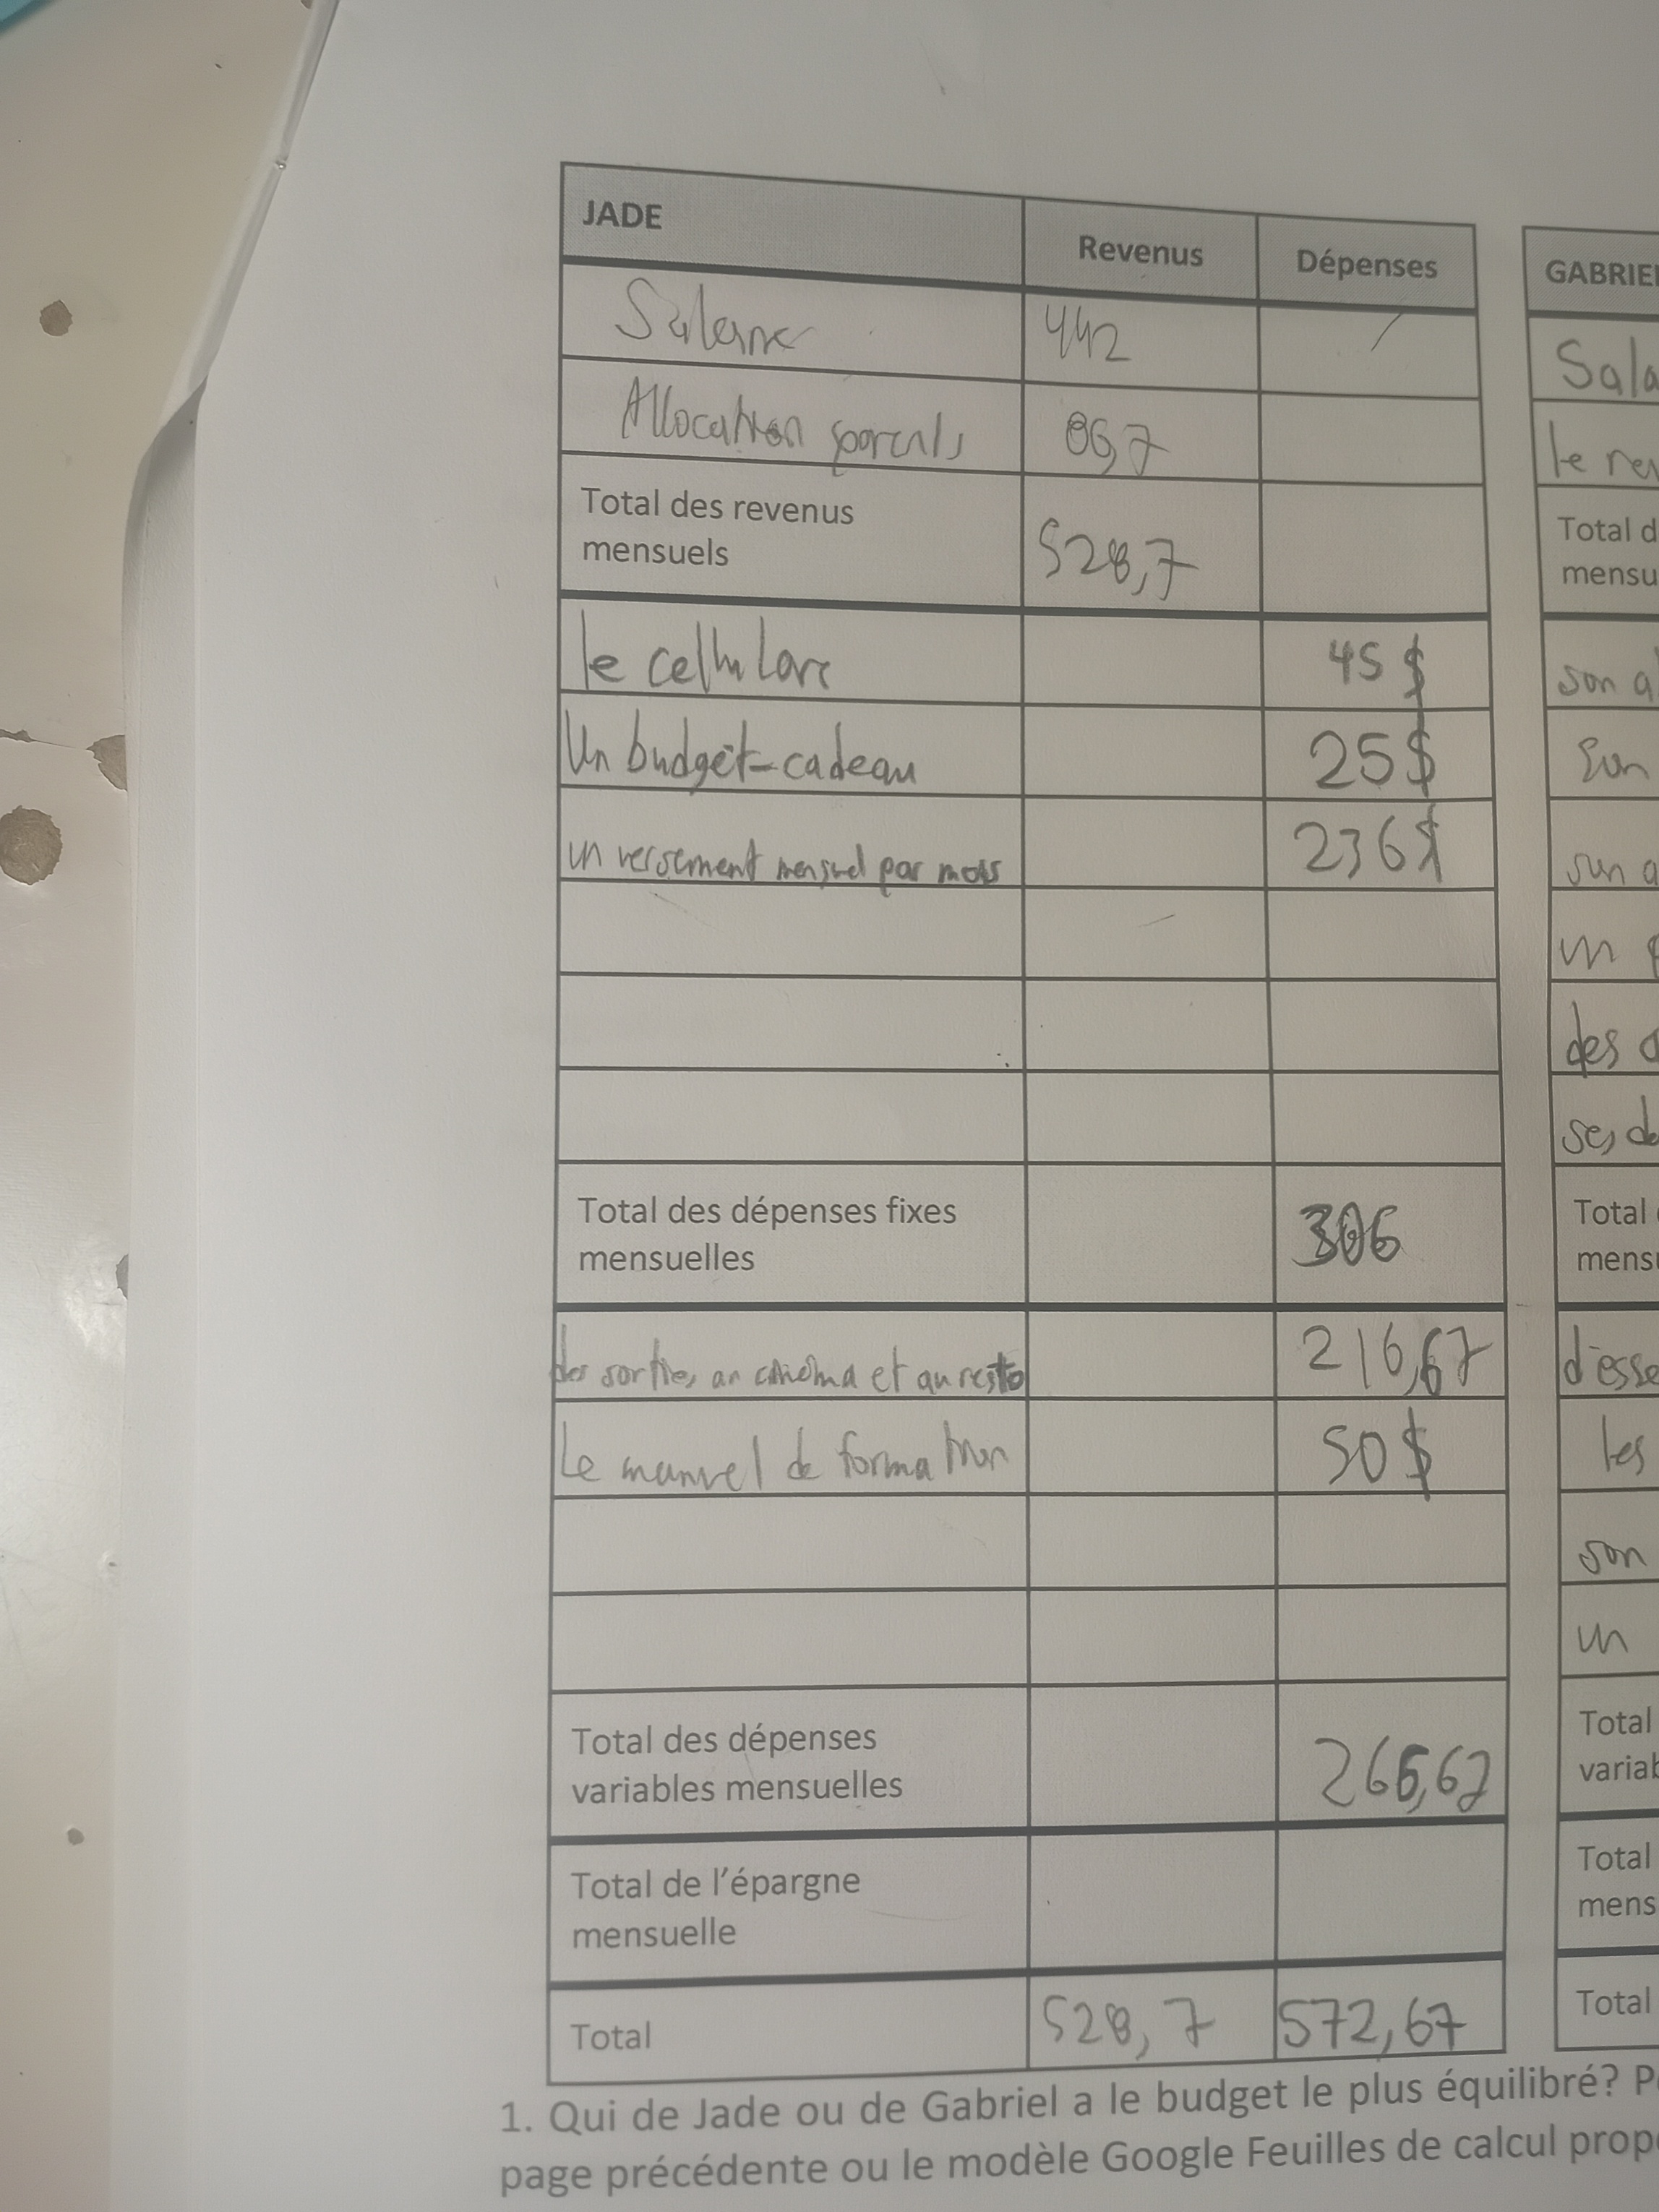 JADE Revenus Dépenses
Salaire 442
Allocation parents 86,7
Total des revenus
mensuels 528,7
le cellulaire 45 $
Un budget-cadeau 25 $
un versement mensuel par mois 236 $
Total des dépenses fixes
mensuelles 306
des sorties au cinéma et au resto 216,67
Le manuel de formation 50 $
Total des dépenses
variables mensuelles 266,67
Total de l'épargne
mensuelle
Total 528,7 572,67
GABRIEL
Sala
le rev
Total d
mensu
son a
Son
son a
un
des
ses de
Total
mensu
d'esse
les
son
un
Total
variab
Total
mens
Total
1. Qui de Jade ou de Gabriel a le budget le plus équilibré? P
page précédente ou le modèle Google Feuilles de calcul prop